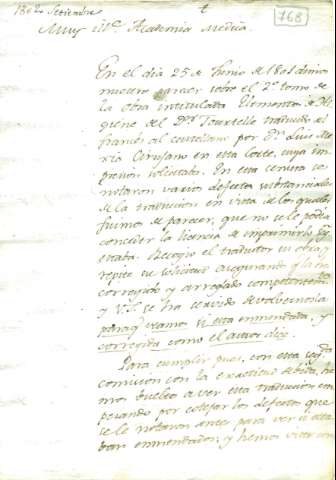 1802 Setiembre
768
Muy Ill.e Academia Médica
En el dia 25 de Junio de 1801 dimos
nuestro parecer sobre el 2.º tomo de
la obra intitulada Elementos de Hi
giene del D.r Tourtelle traducida del
francés al castellano por D.n Luis Ma
ria Cerusano en esta Corte, cuya im
presion solicitaba. En esta censura se
notaron varios defectos substanciales
de la traduccion en vista de los quales
fuimos de parecer, que no se le podia
conceder la licencia de imprimirla
Recogio el traductor su obra, y
repite su solicitud asegurando
corregido y arreglado competentem.te
y V.S. se ha servido devolvernosla
para q.e veamos si esta enmendada, y
corregida como el autor dice.
Para cumplir pues, con esta
comision con la exactitud debida, he
mos buelto a ver esta traduccion em
pezando por cotejar los defectos que
se le notaron antes para ver si esta
ban enmendados, y hemos visto con